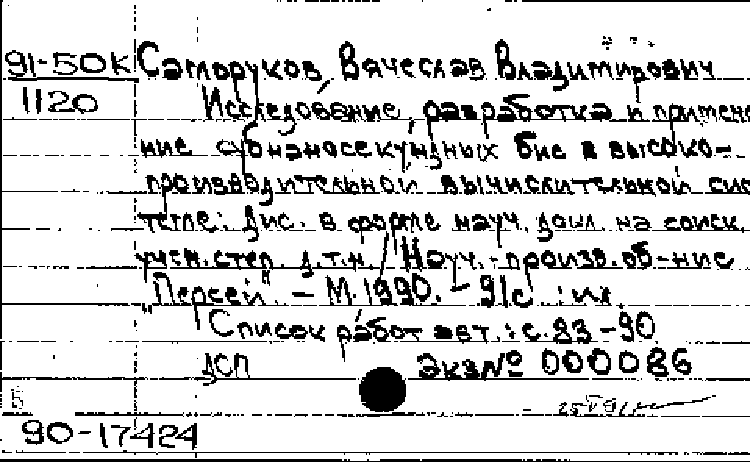 91-50К Саморуков, Вячеслав Владимирович
1120 Исследование, разработка и примене
ние субнаносекундных бис в высоко-
производительной вычислительной сис
теме: Дис. в форме науч. докл. на соиск.
учен. степ. д.т.н. / Науч.-произв. об-ние
"Персей". - М. 1990. - 91с : ил.
Список работ авт.: с. 83-90
ДСП Экз № 000086
Б
90-17424